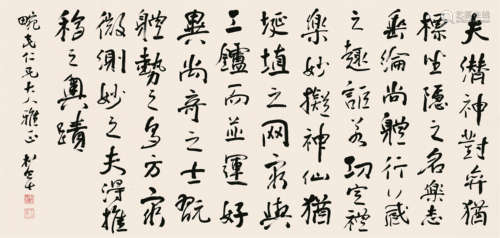 夫潛神對弈猶
標坐隱之名樂志
垂綸尚體行藏
之趣詎若功定禮
樂妙擬神仙猶
埏埴之罔窮與
工鑪而並運好
異尚奇之士翫
體勢之多方窮
微測妙之夫得推
移之奧蹟
仁兄大人雅正